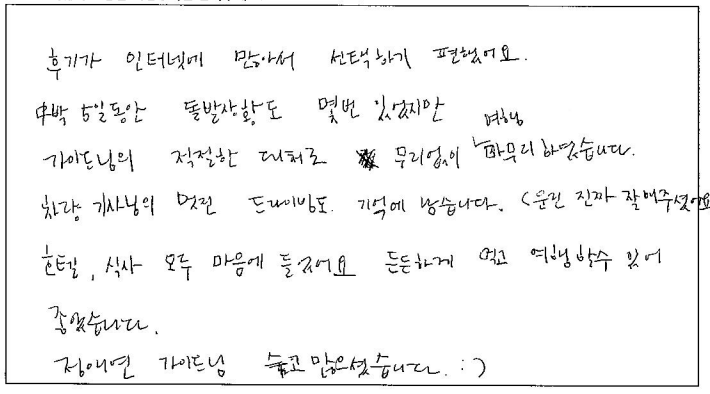 후기가 인터넷에 많아서 선택하기 편했어요.
4박 5일동안 돌발상황도 몇번 있었지만
가이드님의 적절한 대처로 무리없이 여행 마무리 하였습니다.
차량 기사님의 멋진 드라이빙도 기억에 남습니다. (운전 진짜 잘해주셨어요
호텔, 식사 모두 마음에 들었어요 든든하게 먹고 여행할수 있어
좋았습니다.
정애연 가이드님 수고 많으셨습니다. :)